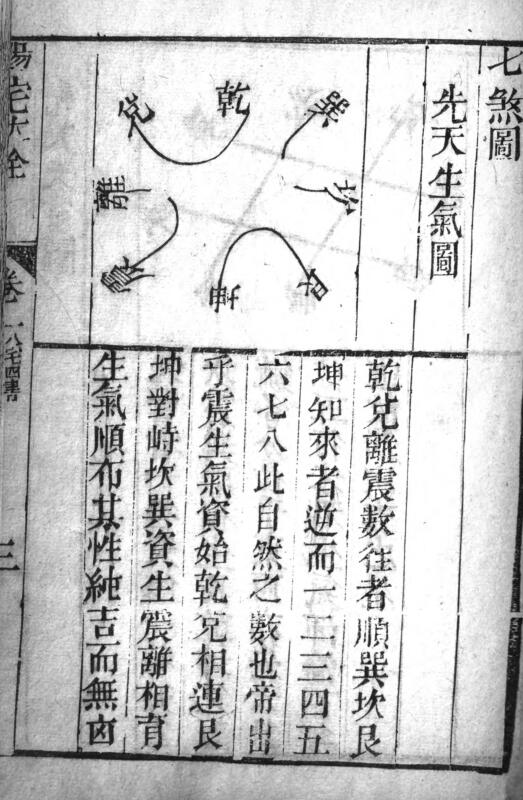 七煞圖
先天生氣圖
乾
兌
離
震
巽
坎
艮
坤
乾兌離震數往者順巽坎艮
坤知來者逆而一二三四五
六七八此自然之數也帝出
乎震生氣資始乾兌相連艮
坤對峙坎巽資生震離相育
生氣順布其性純吉而無凶
陽宅大全
卷一
八宅四書
三